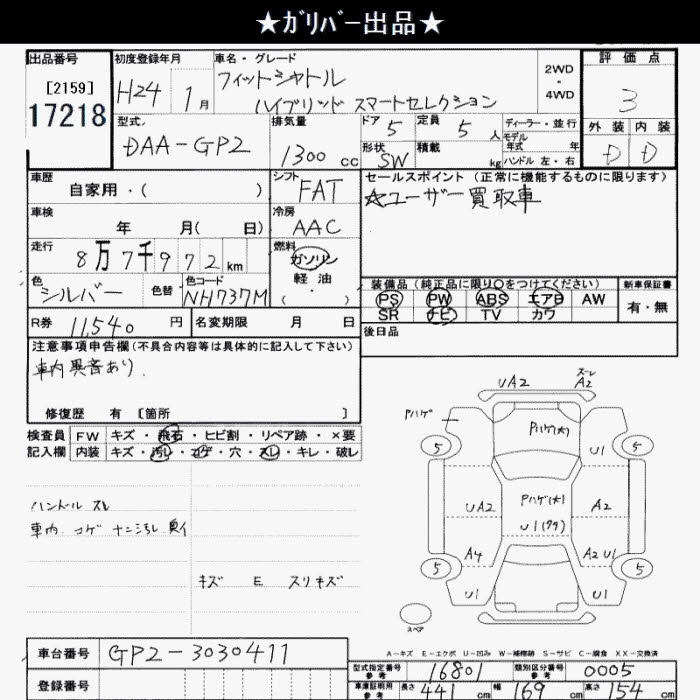 ★ガリバー出品★
出品番号
[2159]
17218
初度登録年月
H24 1月
車名・グレード
フィットシャトル
ハイブリッド スマートセレクション
2WD
・
4WD
評価点
3
外装 内装
D D
型式
DAA-GP2
排気量
1300 cc
ドア 5
定員 5 人
形状 SW
積載 kg
ディーラー・並行
モデル
年式 年
ハンドル 左・右
車歴
自家用・( )
シフト
FAT
セールスポイント (正常に機能するものに限ります)
☆ユーザー買取車
車検
年 月( 日)
冷房
AAC
走行
8万7千972km
燃料
ガソリン
軽油
( ・ )
色
シルバー
色替
色コード
NH737M
装備品 (純正品に限り○をつけてください)
PS PW ABS エアB AW
SR ナビ TV カワ
新車保証書
有・無
R券 11,540 円
名変期限 月 日
後日品
注意事項申告欄(不具合内容等は具体的に記入して下さい)
車内異音あり.
修復歴 有 [箇所 ]
検査員 FW キズ・飛石・ヒビ割・リペア跡・×要
記入欄 内装 キズ・汚レ・コゲ・穴・スレ・キレ・破レ
ハンドル スレ
車内 コゲ
キズ E スリキズ
UA2
ズレ
A2
Pハゲ
Pハゲ(大)
5
5
U1
UA2
Pハゲ(大)
U1(99)
A2
A4
A2 U1
5
5
U1
U1
スペア
A-キズ E-エクボ U-凹み W-補修跡 S-サビ C-腐食 XX-交換済
車台番号 GP2-3030411
登録番号
型式指定番号
参考
16801
類別区分番号
参考
0005
車庫証明用
参考
長さ 441 cm
幅 169 cm
高さ 154 cm